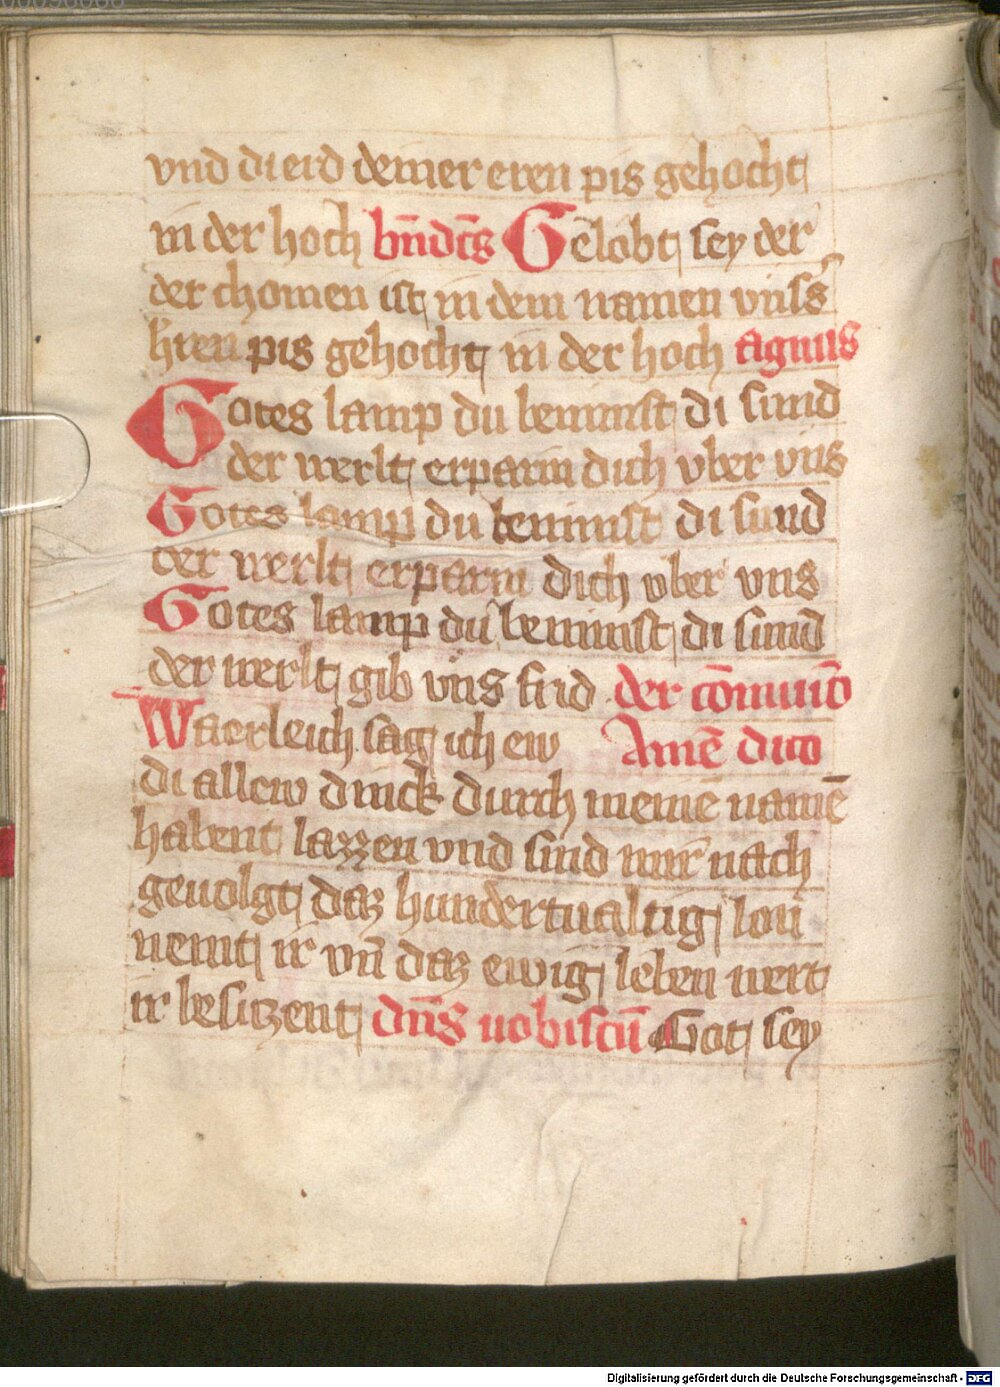 vnd di erd deiner eren pis gehocht
in der hoch bn̄dc̄s Gelobt sey der
der chomen ist in dem namen vnss̄
h̄ren pis gehocht in der hoch agnus
Gotes lamp du benimst di sund
der werlt erparm dich vber vns
Gotes lamp du benimst di sund
der werlt erparm dich vber vns
Gotes lamp du benimst di sund
der werlt gib vns frid der cōmunīo
Waerleich sag ich ew Amē dico
di allew dinck durch meine namē
habent lazzen vnd sind mir nach
geuolgt daz hundertualtig lon
nemt ir vn̄ daz ewig leben wert
ir besitzent dn̄s uobiscū Got sey
Digitalisierung gefördert durch die Deutsche Forschungsgemeinschaft - DFG